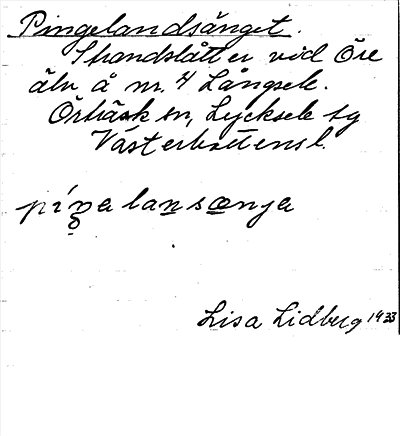 Pingelandsänget.
Strandslåtter vid Öre
älv å nr. 4 Långsele.
Örträsk sn, Lycksele tg
Västerbottensl.
píŋa lan sænja
Lisa Lidberg 1933